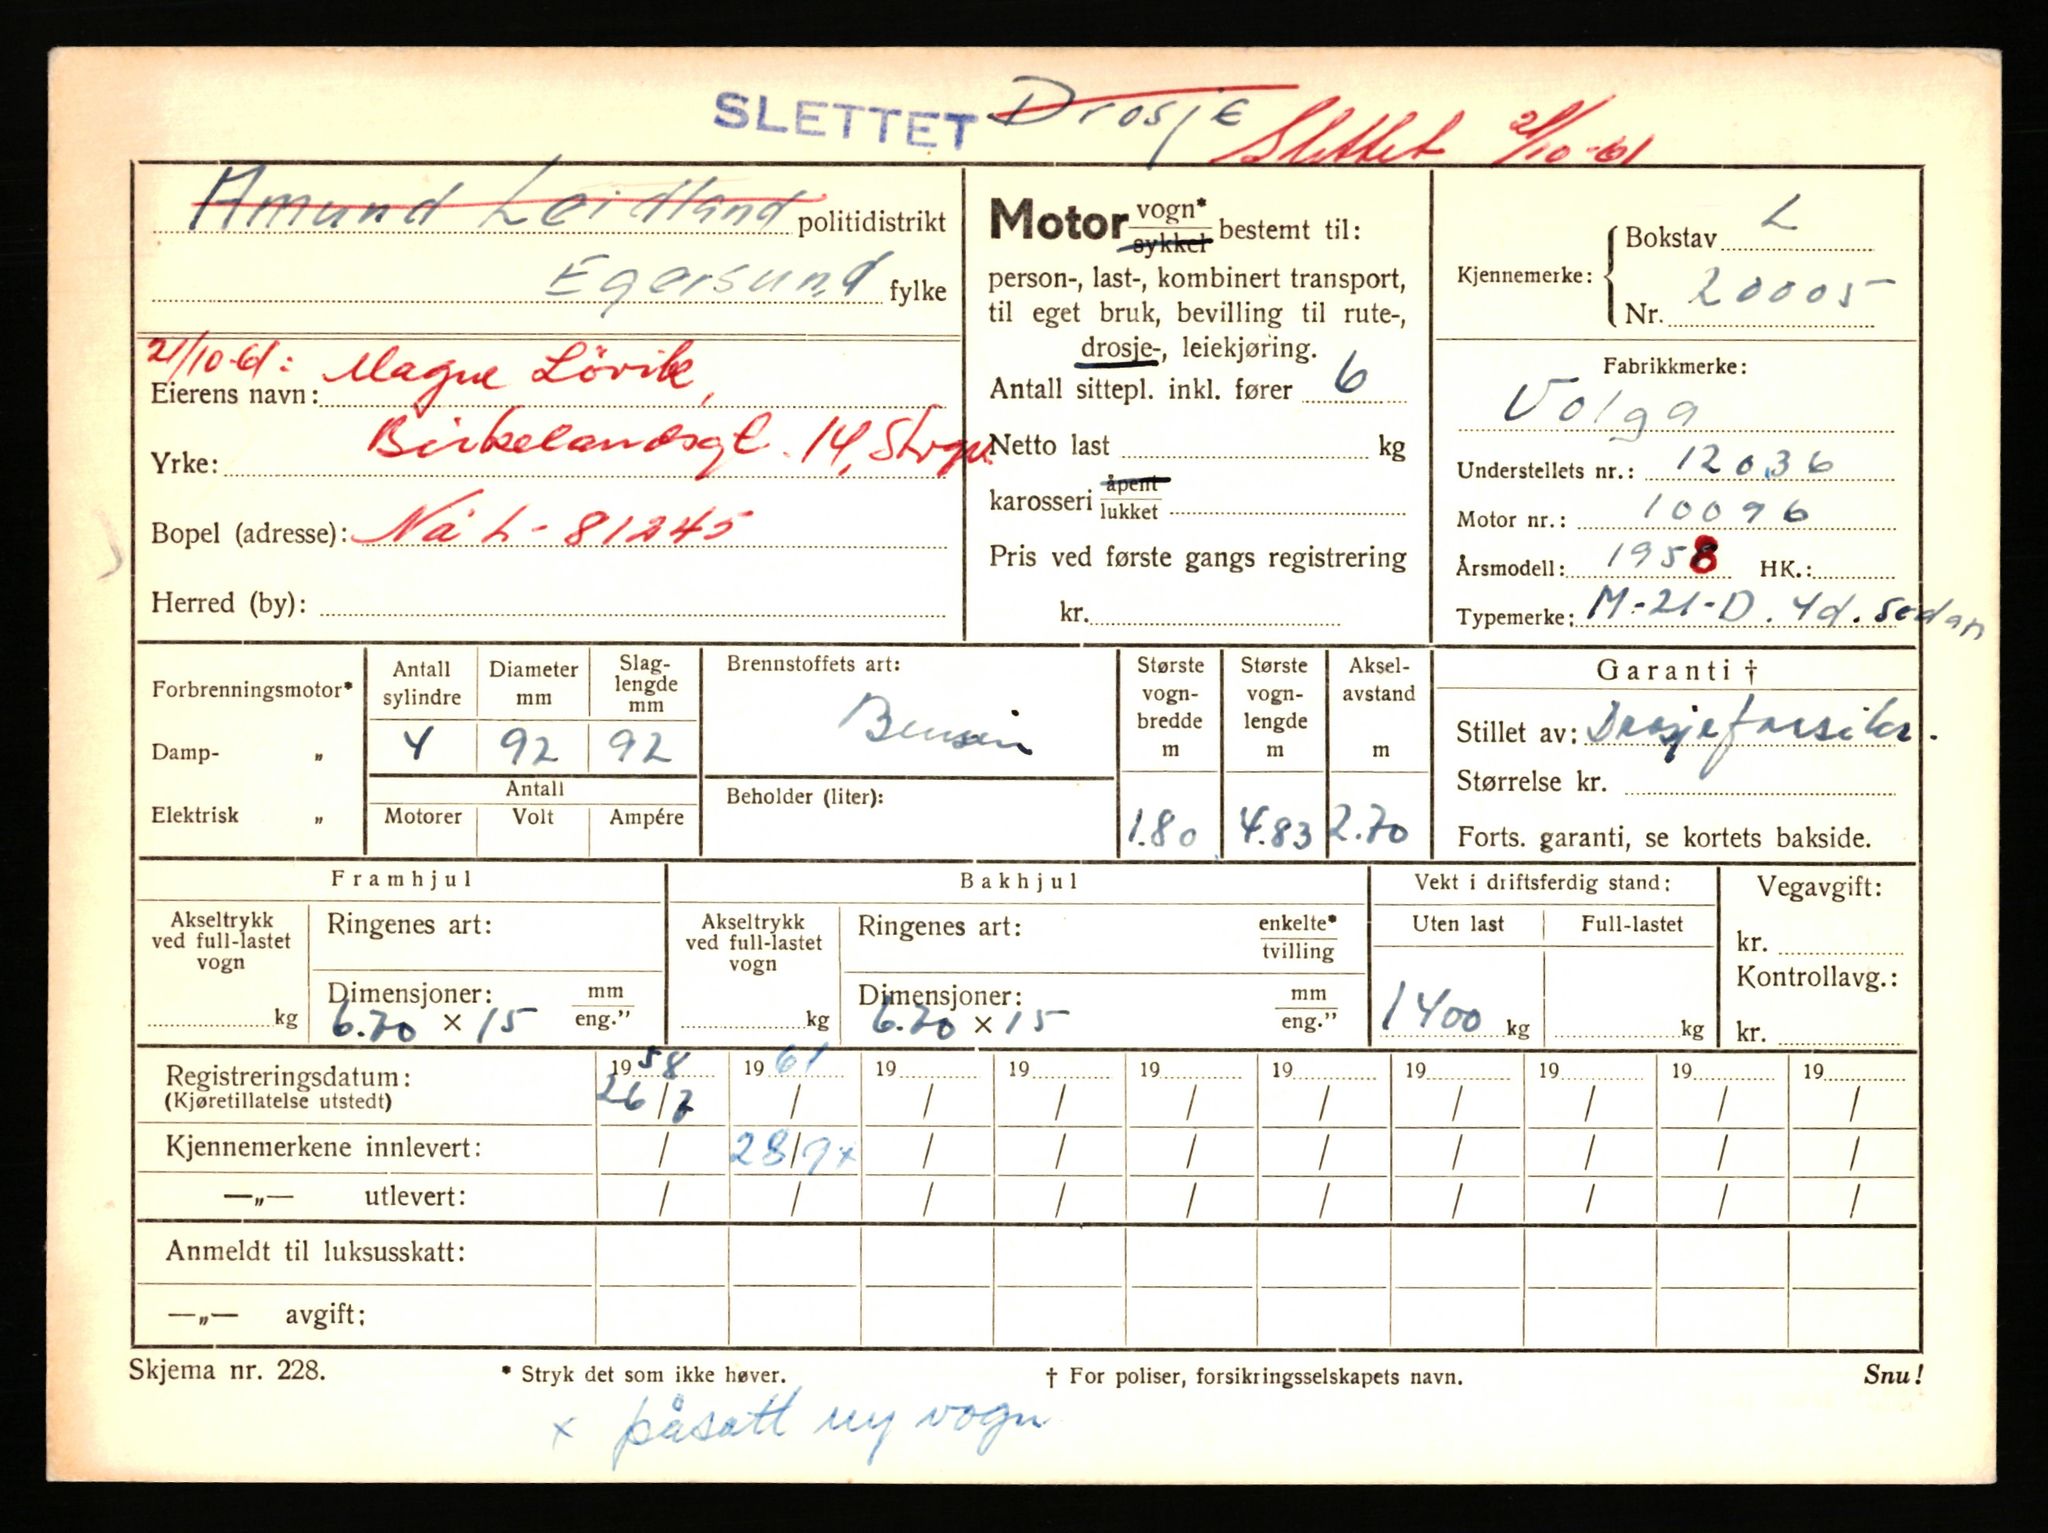 SLETTET Drosje Slettet 21/10-61
Amund Leidland politidistrikt
Egersund fylke
21/10-61: Magne Lövik,
Eierens navn:
Birkelandsgt. 14, Stvgr.
Yrke:
Bopel (adresse): Nå L-81245
Herred (by):
Motor vogn* sykkel bestemt til:
person-, last-, kombinert transport,
til eget bruk, bevilling til rute-,
drosje-, leiekjøring.
Antall sittepl. inkl. fører 6
Netto last kg
karosseri åpent lukket
Pris ved første gangs registrering
kr.
Kjennemerke: Bokstav L
Nr. 20005
Fabrikkmerke:
Volga
Understellets nr.: 12036
Motor nr.: 10096
Årsmodell: 1958 HK.:
Typemerke: M-21-D. 4d. sedan
Forbrenningsmotor*
Damp- „
Elektrisk „
Antall sylindre
4
Diameter mm
92
Slag-lengde mm
92
Antall
Motorer Volt Ampére
Brennstoffets art:
Bensin
Beholder (liter):
Største vogn-bredde m
1.80
Største vogn-lengde m
4.83
Aksel-avstand m
2.70
Garanti †
Stillet av: Drosjeforsikr.
Størrelse kr.
Forts. garanti, se kortets bakside.
Framhjul
Akseltrykk ved full-lastet vogn
kg
Ringenes art:
Dimensjoner: mm eng.”
6.70 × 15
Bakhjul
Akseltrykk ved full-lastet vogn
kg
Ringenes art: enkelte* tvilling
Dimensjoner: mm eng.”
6.70 × 15
Vekt i driftsferdig stand:
Uten last Full-lastet
1400 kg kg
Vegavgift:
kr.
Kontrollavg.:
kr.
Registreringsdatum: 1958 1961 19 19 19 19 19 19 19 19
(Kjøretillatelse utstedt) 26/7 / / / / / / / / /
Kjennemerkene innlevert: / 28/9x / / / / / / / /
—„— utlevert: / / / / / / / / / /
Anmeldt til luksusskatt:
—„— avgift:
Skjema nr. 228. * Stryk det som ikke høver. † For poliser, forsikringsselskapets navn. Snu!
x påsatt ny vogn